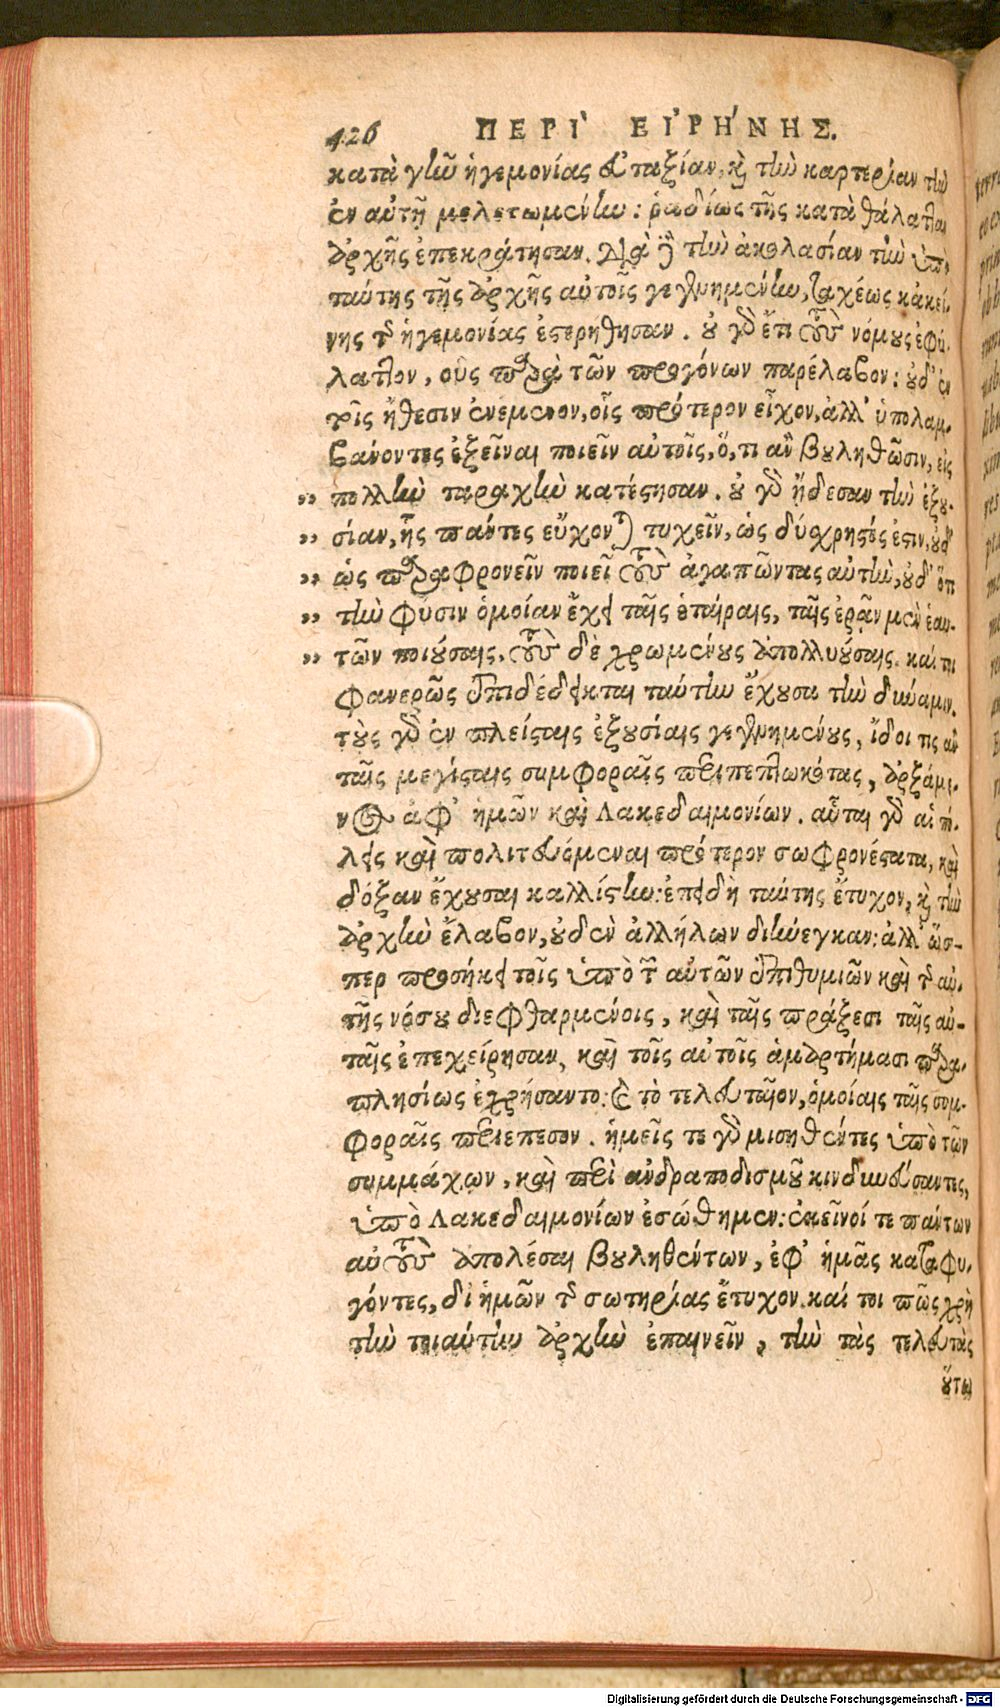 426 ΠΕΡΙ' ΕΙ'ΡΗ'ΝΗΣ.
κατὰ γῆν ἡγεμονίας εὐταξίαν, καὶ τὴν καρτερίαν τὴν
ἐν αὐτῇ μελετωμένην: ῥαδίως τῆς κατὰ θάλατταν
ἀρχῆς ἐπεκράτησαν. Διὰ δὲ τὴν ἀκολασίαν τὴν ὑπὸ
ταύτης τῆς ἀρχῆς αὐτοῖς γεγενημένην, ταχέως κἀκεί-
νης τῆς ἡγεμονίας ἐστερήθησαν. οὐ γὰρ ἔτι τοὺς νόμους ἐφύ-
λαττον, οὓς παρὰ τῶν προγόνων παρέλαβον: οὐδ' ἐν
τοῖς ἤθεσιν ἐνέμενον, οἷς πρότερον εἶχον, ἀλλ' ὑπολαμ-
βάνοντες ἐξεῖναι ποιεῖν αὐτοῖς, ὅ, τι ἂν βουληθῶσιν, εἰς
„ πολλὴν ταραχὴν κατέστησαν. οὐ γὰρ ᾔδεσαν τὴν ἐξου-
„ σίαν, ἧς πάντες εὔχονται τυχεῖν, ὡς δύσχρηστός ἐστιν, οὐδ'
„ ὡς παραφρονεῖν ποιεῖ τοὺς ἀγαπῶντας αὐτὴν, οὐδ' ὅτι
„ τὴν φύσιν ὁμοίαν ἔχει ταῖς ἑταίραις, ταῖς ἐρᾶν μὲν ἑαυ-
„ τῶν ποιούσαις, τοὺς δὲ χρωμένους ἀπολλυούσαις. καί τοι
φανερῶς ἐπιδέδεικται ταύτην ἔχουσα τὴν δύναμιν.
τοὺς γὰρ ἐν πλείσταις ἐξουσίαις γεγενημένους, ἴδοι τις ἂν
ταῖς μεγίσταις συμφοραῖς περιπεπτωκότας, ἀρξάμε-
νος ἀφ' ἡμῶν καὶ Λακεδαιμονίων. αὗται γὰρ αἱ πό-
λεις καὶ πολιτευόμεναι πρότερον σωφρονέστατα, καὶ
δόξαν ἔχουσαι καλλίστην: ἐπειδὴ ταύτης ἔτυχον, καὶ τὴν
ἀρχὴν ἔλαβον, οὐδὲν ἀλλήλων διήνεγκαν: ἀλλ' ὥσ-
περ προσήκει τοῖς ὑπὸ τῶν αὐτῶν ἐπιθυμιῶν καὶ τῆς αὐ-
τῆς νόσου διεφθαρμένοις, καὶ ταῖς πράξεσι ταῖς αὐ-
ταῖς ἐπεχείρησαν, καὶ τοῖς αὐτοῖς ἁμαρτήμασι παρα-
πλησίως ἐχρήσαντο: καὶ τὸ τελευταῖον, ὁμοίαις ταῖς συμ-
φοραῖς περιέπεσον. ἡμεῖς τε γὰρ μισηθέντες ὑπὸ τῶν
συμμάχων, καὶ περὶ ἀνδραποδισμοῦ κινδυνεύσαντες,
ὑπὸ Λακεδαιμονίων ἐσώθημεν: ἐκεῖνοί τε πάντων
αὐτοὺς ἀπολέσαι βουληθέντων, ἐφ' ἡμᾶς καταφυ-
γόντες, δι' ἡμῶν τῆς σωτηρίας ἔτυχον. καί τοι πῶς χρὴ
τὴν τοιαύτην ἀρχὴν ἐπαινεῖν, τὴν τὰς τελευτὰς
οὕτω
Digitalisierung gefördert durch die Deutsche Forschungsgemeinschaft - DFG